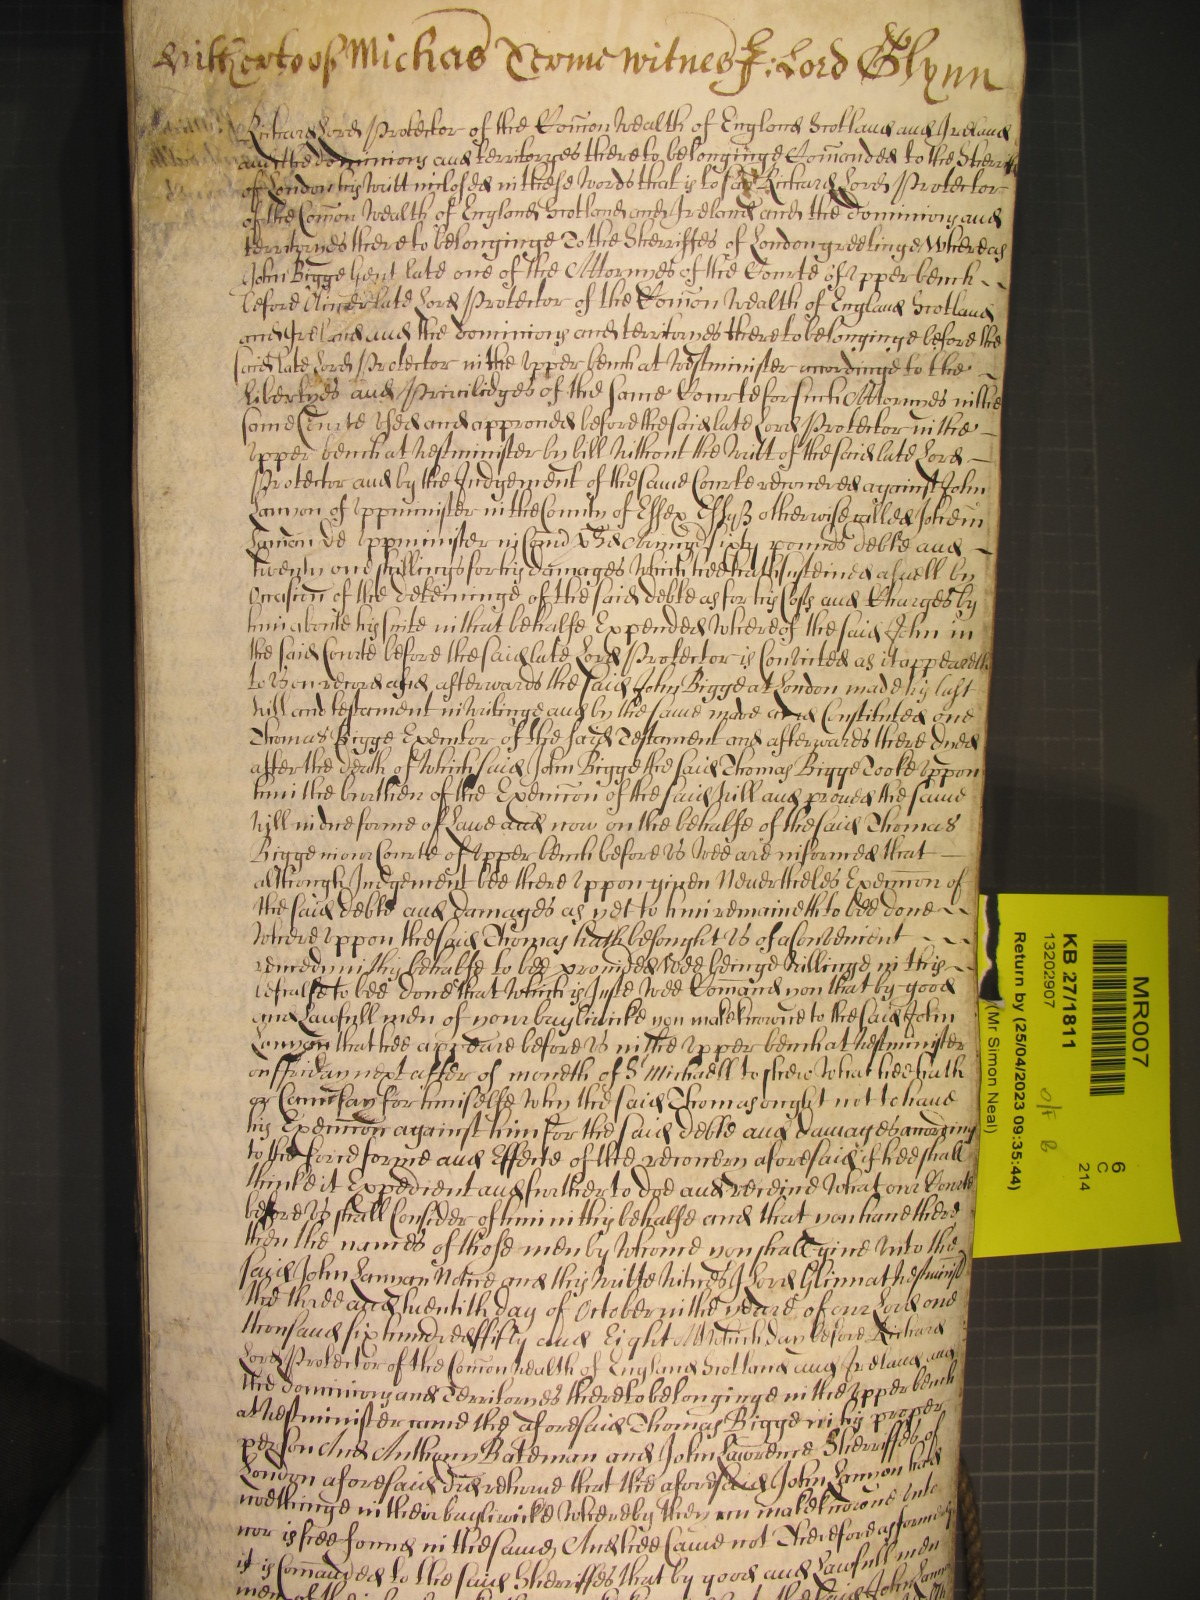 Hitherto of Michas Terme witnes J: Lord Glynn
Richard Lord Protector of the Com̄on Wealth of England Scotland and Ireland
and the dominions and territoryes thereto belonginge Com̄anded to the Sherriffes
of London his writt inclosed in these words that is to say Richard Lord Protector
of the Com̄on Wealth of England Scotland and Ireland and the dominions and
territories thereto belonginge To the Sherriffes of London greetinge Whereas
John Bigge gent late one of the Attornyes of the Courte of Upper bench
before Oliver late Lord Protector of the Com̄on Wealth of England Scotland
and Ireland and the dominions and territories thereto belonginge before the
said late Lord Protector in the Upper bench at Westminister accordinge to the
libertyes and Priviledges of the same Courte for such Attornyes in the
same Courte used and approved before the said late Lord Protector in the
Upper bench at Westminister by bill without the writt of the said late Lord
Protector and by the Judgement of the same Courte recovered against John
Lannon of Uppminister in the County of Essex otherwise called John
Lannon de Uppminister in Com̄ sixty pounds debte and
twenty one shillings for his damages which hee hath susteined aswell by
occasion of the deteininge of the said debte as for his Costs and Charges by
him aboute his suite in that behalfe Expended whereof the said John in
the said Courte before the said late Lord Protector is Convicted as it appeareth
to us on record and afterwards the said John Bigge at London made his last
will and testament in writinge and by the same made and Constituted one
Thomas Bigge Executor of the said Testament and afterwards there dyed
after the death of which said John Bigge the said Thomas Bigge Tooke uppon
him the burthen of the Execucōn of the said will and proved the same
will in due forme of Lawe and now on the behalfe of the said Thomas
Bigge in our Courte of Upper bench before us wee are informed that
although Judgement bee there uppon given Neverthelės Execucōn of
the said debte and damages as yet to him remaineth to bee done
Where uppon the said Thomas hath besought us of a Convenient
remedy in this behalfe to bee provided Wee beinge willinge in this
behalfe to bee done that which is Juste Wee Comand you that by good
and Lawfull men of your bayliwicke you make knowne to the said John
Lannon that hee appeare before us in the Upper bench at Westminister
on Friday next after of moneth of St Michaell to shew what hee hath
or Cann say for himselfe why the said Thomas ought not to have
his Execucōn against him for the said debte and damages accordinge
to the force forme and Effecte of the recovery aforesaid if hee shall
thinke it Expedient and further to doe and receive what our Courte
before us shall Consider of him in this behalfe and that you have there
then the names of those men by whome you shall give unto the
said John Lannon Notice and this writte Witnes J Lord Glinn at Westminist
the three and twentith day of October in the yeare of our Lord one
thousand six hundred fifty and Eight Att which day before Richard
Lord Protector of the Com̄on wealth of England Scotland and Ireland and
the dominions and Territories thereto belonginge in the Upper bench
at Westminister came the aforesaid Thomas Bigge in his proper
person And Anthony Bateman and John Lawrence Sherriffes of
London aforesaid did returne that the aforesaid John Lannon hath
noethinge in their bayliwicke whereby they can make knowne unto
nor is hee found in the same And hee came not Therefore as formerly
it is Comanded to the said Sherriffes that by good and Lawfull men
MR007
KB 27/1811
13202907
Return by (25/04/2023 09:35:44)
(Mr Simon Neal)
6
C
214